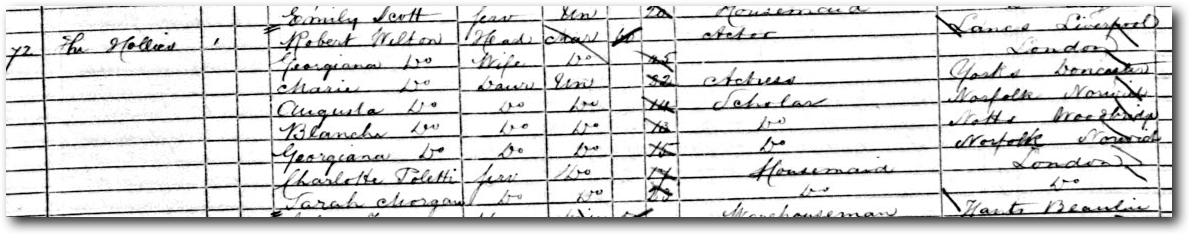 Emily Scott Serv Un 20 Housemaid Lancs Liverpool
72 The Hollies 1 Robert Wilton Head Mar 60 Actor London
Georgiana Do Wife Do Yorks Doncaster
Marie Do Daur Un 22 Actress Norfolk Norwich
Augusta Do Do Do 14 Scholar Notts
Blanche Do Do Do Do Norfolk Norwich
Georgiana Do Do Do Do London
Charlotte Toletti Serv Do 17 Housemaid Do
Sarah Morgan Do Do 20 Do Hants Beaulieu
Warehouseman